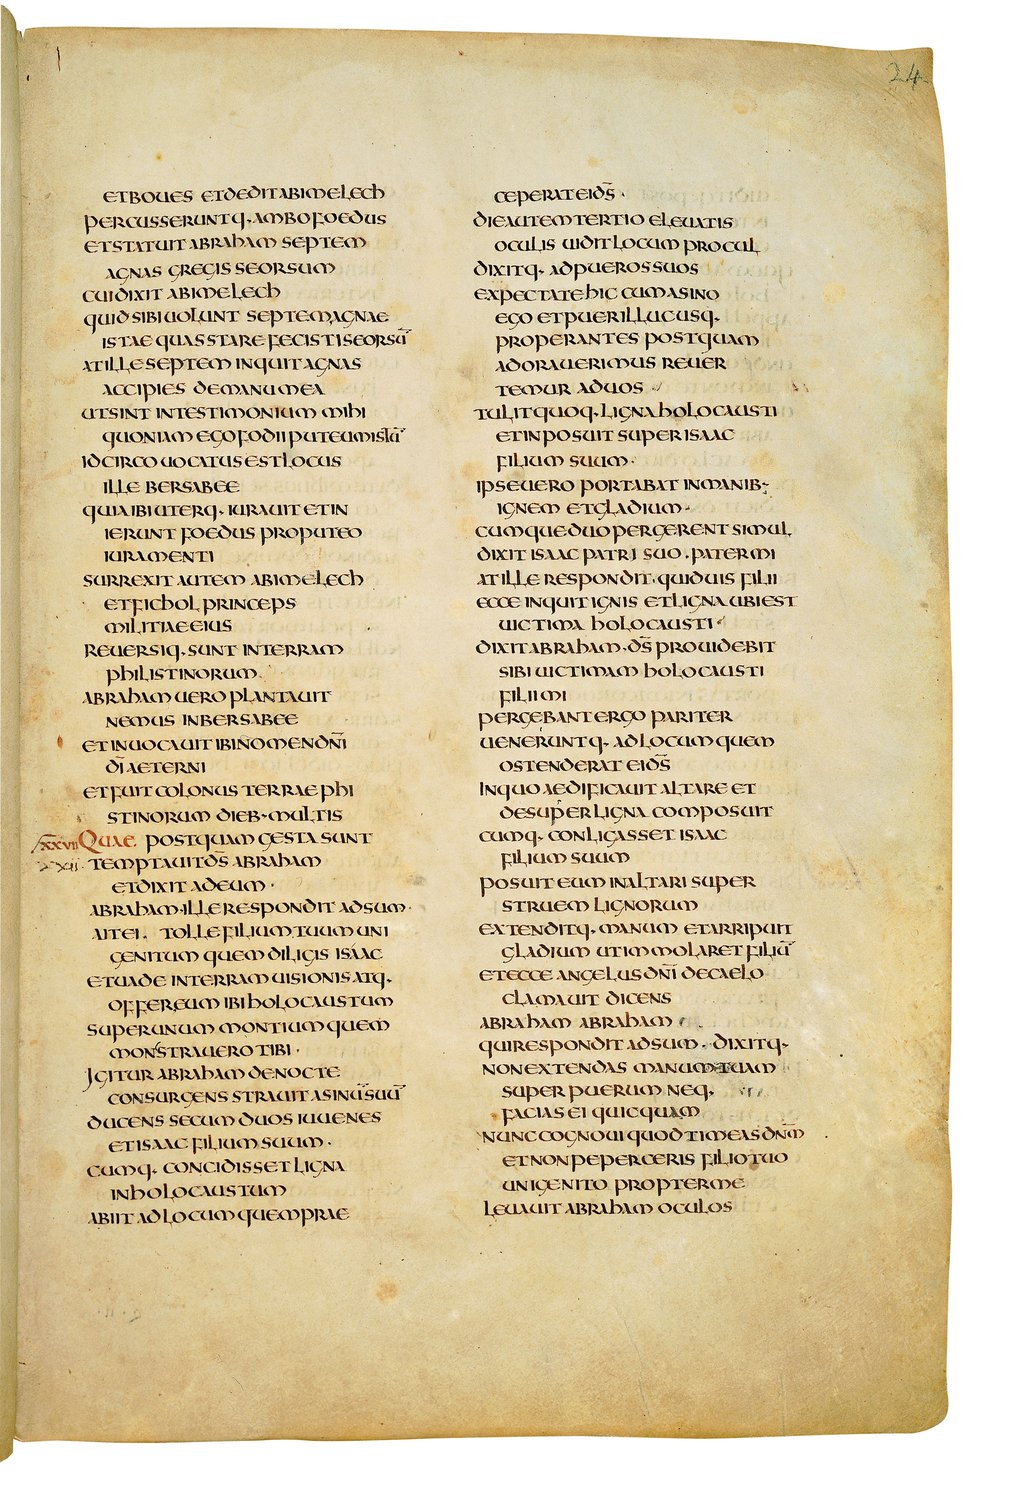 24
ET BOUES ET DEDIT ABIMELECH
PERCUSSERUNTQ· AMBO FOEDUS
ET STATUIT ABRAHAM SEPTEM
AGNAS GREGIS SEORSUM
CUI DIXIT ABIMELECH
QUID SIBI UOLUNT SEPTEM AGNAE
ISTAE QUAS STARE FECISTI SEORSŪ
AT ILLE SEPTEM INQUIT AGNAS
ACCIPIES DE MANU MEA
UT SINT IN TESTIMONIUM MIHI
QUONIAM EGO FODI PUTEUM ISTŪ
IDCIRCO UOCATUS EST LOCUS
ILLE BERSABEE
QUIA IBI UTERQ· IURAUIT ET IN
IERUNT FOEDUS PRO PUTEO
IURAMENTI
SURREXIT AUTEM ABIMELECH
ET FICHOL PRINCEPS
MILITIAE EIUS
REUERSIQ· SUNT IN TERRAM
PHILISTINORUM
ABRAHAM UERO PLANTAUIT
NEMUS IN BERSABEE
ET INUOCAUIT IBI NOMEN DN̄I
DĪ AETERNI
ET FUIT COLONUS TERRAE PHI
STINORUM DIEB· MULTIS
XXVII QUAE POSTQUAM GESTA SUNT
XXII TEMPTAUIT D̄S ABRAHAM
ET DIXIT AD EUM ·
ABRAHAM · ILLE RESPONDIT ADSUM ·
AIT EI · TOLLE FILIUM TUUM UNI
GENITUM QUEM DILIGIS ISAAC
ET UADE IN TERRAM UISIONIS ATQ·
OFFER EUM IBI HOLOCAUSTUM
SUPER UNUM MONTIUM QUEM
MONSTRAUERO TIBI ·
IGITUR ABRAHAM DE NOCTE
CONSURGENS STRAUIT ASINŪ SUŪ
DUCENS SECUM DUOS IUUENES
ET ISAAC FILIUM SUUM ·
CUMQ· CONCIDISSET LIGNA
IN HOLOCAUSTUM
ABIIT AD LOCUM QUEM PRAE
CEPERAT EI D̄S ·
DIE AUTEM TERTIO ELEUATIS
OCULIS UIDIT LOCUM PROCUL
DIXITQ· AD PUEROS SUOS
EXPECTATE HIC CUM ASINO
EGO ET PUER ILLUC USQ·
PROPERANTES POSTQUAM
ADORAUERIMUS REUER
TEMUR AD UOS
TULIT QUOQ· LIGNA HOLOCAUSTI
ET INPOSUIT SUPER ISAAC
FILIUM SUUM ·
IPSE UERO PORTABAT IN MANIB·
IGNEM ET GLADIUM ·
CUMQUE DUO PERGERENT SIMUL
DIXIT ISAAC PATRI SUO · PATER MI
AT ILLE RESPONDIT · QUID UIS FILI
ECCE INQUIT IGNIS ET LIGNA UBI EST
UICTIMA HOLOCAUSTI
DIXIT ABRAHAM · D̄S PROUIDEBIT
SIBI UICTIMAM HOLOCAUSTI
FILI MI
PERGEBANT ERGO PARITER
UENERUNTQ· AD LOCUM QUEM
OSTENDERAT EI D̄S
IN QUO AEDIFICAUIT ALTARE ET
DESUPER LIGNA COMPOSUIT
CUMQ· CONLIGASSET ISAAC
FILIUM SUUM
POSUIT EUM IN ALTARI SUPER
STRUEM LIGNORUM
EXTENDITQ· MANUM ET ARRIPUIT
GLADIUM UT IMMOLARET FILIŪ
ET ECCE ANGELUS DN̄I DE CAELO
CLAMAUIT DICENS
ABRAHAM ABRAHAM
QUI RESPONDIT ADSUM · DIXITQ·
NON EXTENDAS MANUM TUAM
SUPER PUERUM NEQ·
FACIAS EI QUICQUAM
NUNC COGNOUI QUOD TIMEAS DN̄M
ET NON PEPERCERIS FILIO TUO
UNIGENITO PROPTER ME
LEUAUIT ABRAHAM OCULOS